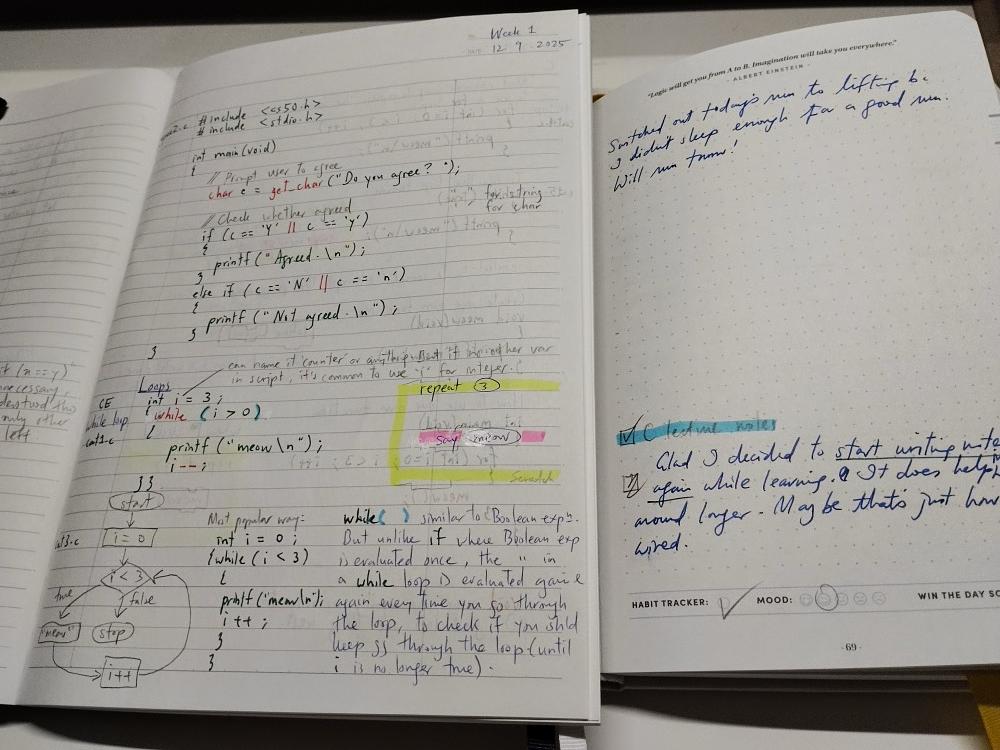 Week 1
12. 9. 2025
#include <cs50.h>
# include <stdio.h>
int main(void)
{
// Prompt user to agree
char c = get_char("Do you agree? ");
// Check whether agreed
if (c == 'Y' || c == 'y')
{
printf("Agreed.\n");
}
else if (c == 'N' || c == 'n')
{
printf("Not agreed.\n");
}
}
can name it counter or anything. But if no other var
in script, it's common to use "i" for integer.
Loops
CE
int i = 3;
while loop
{ while (i > 0)
cat1.c
{
printf("meow\n");
i--;
} }
repeat 3
say meow
Scratch
start
i = 0
cat3.c
i < 3
true
false
"meow"
stop
i++
Most popular way:
int i = 0;
{ while (i < 3)
{
printf("meow\n");
i++;
}
}
while( ) similar to Boolean exp".
But unlike if where Boolean exp
is evaluated once, the " in
a while loop is evaluated again &
again every time you go through
the loop, to check if you shld
keep going through the loop (until
i is no longer true).
"Logic will get you from A to B. Imagination will take you everywhere."
- ALBERT EINSTEIN -
Switched out today's run to lifting bc
I didn't sleep enough for a good run.
Will run tmrw!
C lecture notes
Glad I decided to start writing note
again while learning. It does help
around longer. Maybe that's just how
wired.
HABIT TRACKER:
MOOD:
WIN THE DAY SC
- 69 -